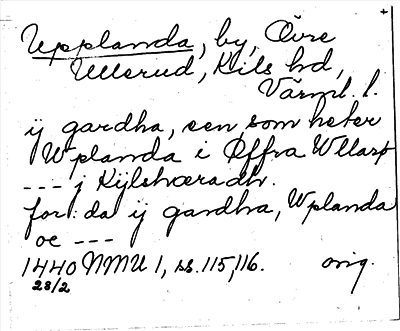 +
Upplanda, by, Övre
Ullerud, Kils hd,
Värml. l.
ij gardha, een som heter
Wplanda i Øffra Wllarp
--- j Kijlshæradh.
for:da ij gardha, Wplanda
oc ---
1440 NMU 1, ss. 115, 116. orig.
28/2